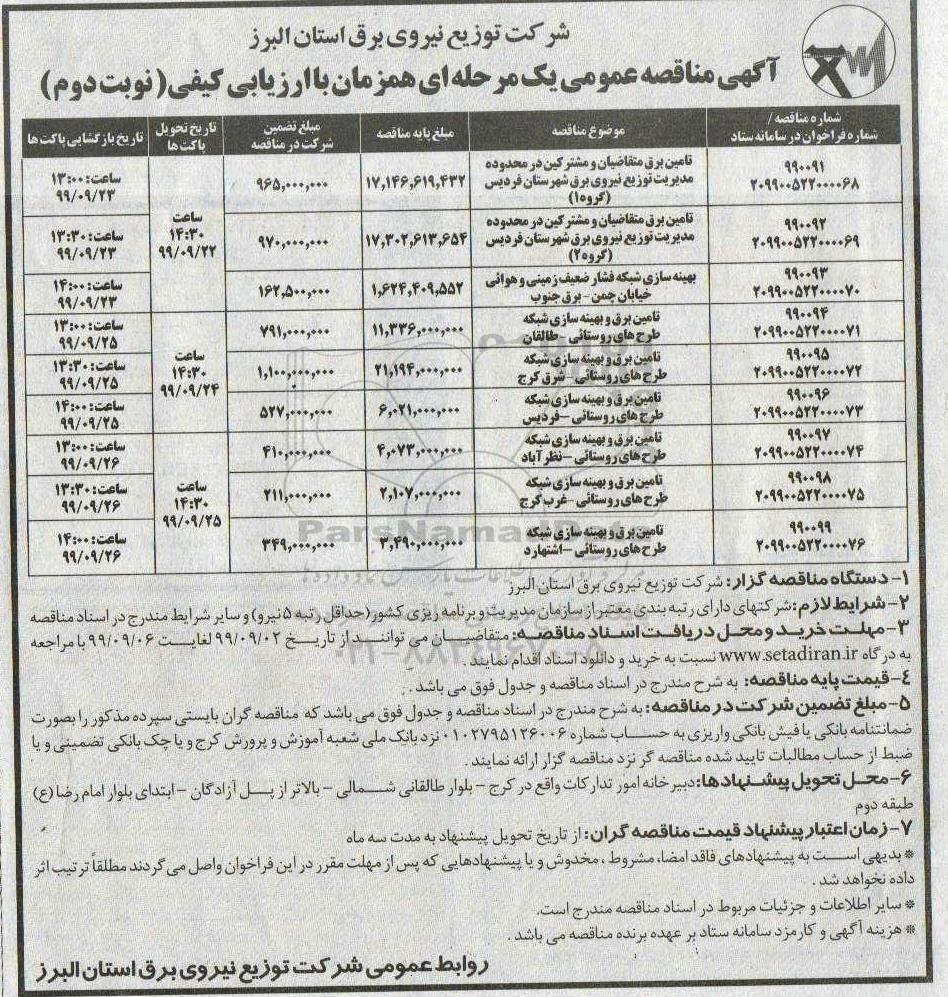 شرکت توزیع نیروی برق استان البرز
آگهی مناقصه عمومی یک مرحله ای همزمان با ارزیابی کیفی (نوبت دوم)
شماره مناقصه / شماره فراخوان در سامانه ستاد | موضوع مناقصه | مبلغ پایه مناقصه | مبلغ تضمین شرکت در مناقصه | تاریخ تحویل پاکت ها | تاریخ بازگشایی پاکت ها
۹۹۰۰۹۱ ۲۰۹۹۰۰۵۲۲۰۰۰۰۶۸ | تامین برق متقاضیان و مشترکین در محدوده مدیریت توزیع نیروی برق شهرستان فردیس (گروه۱) | ۱۷,۱۴۶,۶۱۹,۴۳۲ | ۹۶۵,۰۰۰,۰۰۰ | ساعت ۱۴:۳۰ ۹۹/۰۹/۲۲ | ساعت: ۱۳:۰۰ ۹۹/۰۹/۲۳
۹۹۰۰۹۲ ۲۰۹۹۰۰۵۲۲۰۰۰۰۶۹ | تامین برق متقاضیان و مشترکین در محدوده مدیریت توزیع نیروی برق شهرستان فردیس (گروه۲) | ۱۷,۳۰۲,۶۱۳,۶۵۴ | ۹۷۰,۰۰۰,۰۰۰ | ساعت: ۱۳:۳۰ ۹۹/۰۹/۲۳
۹۹۰۰۹۳ ۲۰۹۹۰۰۵۲۲۰۰۰۰۷۰ | بهینه سازی شبکه فشار ضعیف زمینی و هوائی خیابان چمن - برق جنوب | ۱,۶۲۴,۴۰۹,۵۵۲ | ۱۶۲,۵۰۰,۰۰۰ | ساعت: ۱۴:۰۰ ۹۹/۰۹/۲۳
۹۹۰۰۹۴ ۲۰۹۹۰۰۵۲۲۰۰۰۰۷۱ | تامین برق و بهینه سازی شبکه طرح های روستائی - طالقان | ۱۱,۳۳۶,۰۰۰,۰۰۰ | ۷۹۱,۰۰۰,۰۰۰ | ساعت ۱۴:۳۰ ۹۹/۰۹/۲۴ | ساعت: ۱۳:۰۰ ۹۹/۰۹/۲۵
۹۹۰۰۹۵ ۲۰۹۹۰۰۵۲۲۰۰۰۰۷۲ | تامین برق و بهینه سازی شبکه طرح های روستائی - شرق کرج | ۲۱,۱۹۴,۰۰۰,۰۰۰ | ۱,۱۰۰,۰۰۰,۰۰۰ | ساعت: ۱۳:۳۰ ۹۹/۰۹/۲۵
۹۹۰۰۹۶ ۲۰۹۹۰۰۵۲۲۰۰۰۰۷۳ | تامین برق و بهینه سازی شبکه طرح های روستائی - فردیس | ۶,۰۲۱,۰۰۰,۰۰۰ | ۵۲۷,۰۰۰,۰۰۰ | ساعت: ۱۴:۰۰ ۹۹/۰۹/۲۵
۹۹۰۰۹۷ ۲۰۹۹۰۰۵۲۲۰۰۰۰۷۴ | تامین برق و بهینه سازی شبکه طرح های روستائی - نظرآباد | ۴,۰۷۳,۰۰۰,۰۰۰ | ۴۱۰,۰۰۰,۰۰۰ | ساعت ۱۴:۳۰ ۹۹/۰۹/۲۵ | ساعت: ۱۳:۰۰ ۹۹/۰۹/۲۶
۹۹۰۰۹۸ ۲۰۹۹۰۰۵۲۲۰۰۰۰۷۵ | تامین برق و بهینه سازی شبکه طرح های روستائی - غرب کرج | ۲,۱۰۷,۰۰۰,۰۰۰ | ۲۱۱,۰۰۰,۰۰۰ | ساعت: ۱۳:۳۰ ۹۹/۰۹/۲۶
۹۹۰۰۹۹ ۲۰۹۹۰۰۵۲۲۰۰۰۰۷۶ | تامین برق و بهینه سازی شبکه طرح های روستائی - اشتهارد | ۳,۴۹۰,۰۰۰,۰۰۰ | ۳۴۹,۰۰۰,۰۰۰ | ساعت: ۱۴:۰۰ ۹۹/۰۹/۲۶
ParsNamadData
۱- دستگاه مناقصه گزار: شرکت توزیع نیروی برق استان البرز
۲- شرایط لازم: شرکتهای دارای رتبه بندی معتبر از سازمان مدیریت و برنامه ریزی کشور (حداقل رتبه ۵ نیرو) و سایر شرایط مندرج در اسناد مناقصه
۳- مهلت خرید و محل دریافت اسناد مناقصه: متقاضیان می توانند از تاریخ ۹۹/۰۹/۰۲ لغایت ۹۹/۰۹/۰۶ با مراجعه
به درگاه www.setadiran.ir نسبت به خرید و دانلود اسناد اقدام نمایند.
۴- قیمت پایه مناقصه: به شرح مندرج در اسناد مناقصه و جدول فوق می باشد.
۵- مبلغ تضمین شرکت در مناقصه: به شرح مندرج در اسناد مناقصه و جدول فوق می باشد که مناقصه گران بایستی سپرده مذکور را بصورت
ضمانتنامه بانکی یا فیش بانکی واریزی به حساب شماره ۰۱۰۲۷۹۵۱۲۶۰۰۶ نزد بانک ملی شعبه آموزش و پرورش کرج و یا چک بانکی تضمینی و یا
ضبط از حساب مطالبات تایید شده مناقصه گر نزد مناقصه گزار ارائه نمایند.
۶- محل تحویل پیشنهادها: دبیرخانه امور تدارکات واقع در کرج - بلوار طالقانی شمالی - بالاتر از پل آزادگان - ابتدای بلوار امام رضا (ع)
طبقه دوم
۷- زمان اعتبار پیشنهاد قیمت مناقصه گران: از تاریخ تحویل پیشنهاد به مدت سه ماه
* بدیهی است به پیشنهادهای فاقد امضا، مشروط، مخدوش و یا پیشنهادهایی که پس از مهلت مقرر در این فراخوان واصل می گردند مطلقاً ترتیب اثر
داده نخواهد شد.
* سایر اطلاعات و جزئیات مربوط در اسناد مناقصه مندرج است.
* هزینه آگهی و کارمزد سامانه ستاد بر عهده برنده مناقصه می باشد.
روابط عمومی شرکت توزیع نیروی برق استان البرز